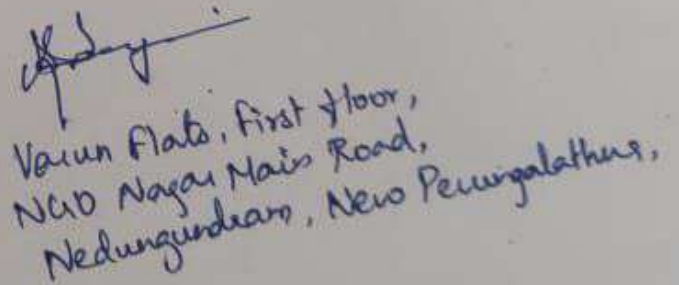 Varun Flats, First Floor,
NGO Nagar Main Road,
Nedungundram, New Perungalathur,